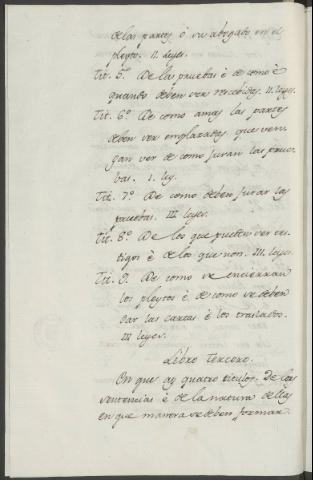 de las partes ó su abogado en el
pleyto. II. leyes.
Tit. 5.º De las pruebas è de como è
quando deben ser recebidas. II. leyes.
Tit. 6.º De como amas las partes
deben ser emplazadas, que ven-
gan ver de como juran las prue-
bas. I. ley.
Tit. 7.º De como deben jurar las
pruebas. III. leyes.
Tit. 8.º De los que pueden ser tes-
tigos è de los que non. III. leyes.
Tit. 9. De como se encierran
los pleytos è de como se deben
dar las cartas è los traslados.
III. leyes.
Libro Tercero.
En que ay quatro titulos de las
sentencias è de la natura dellas
en que manera se deben formar